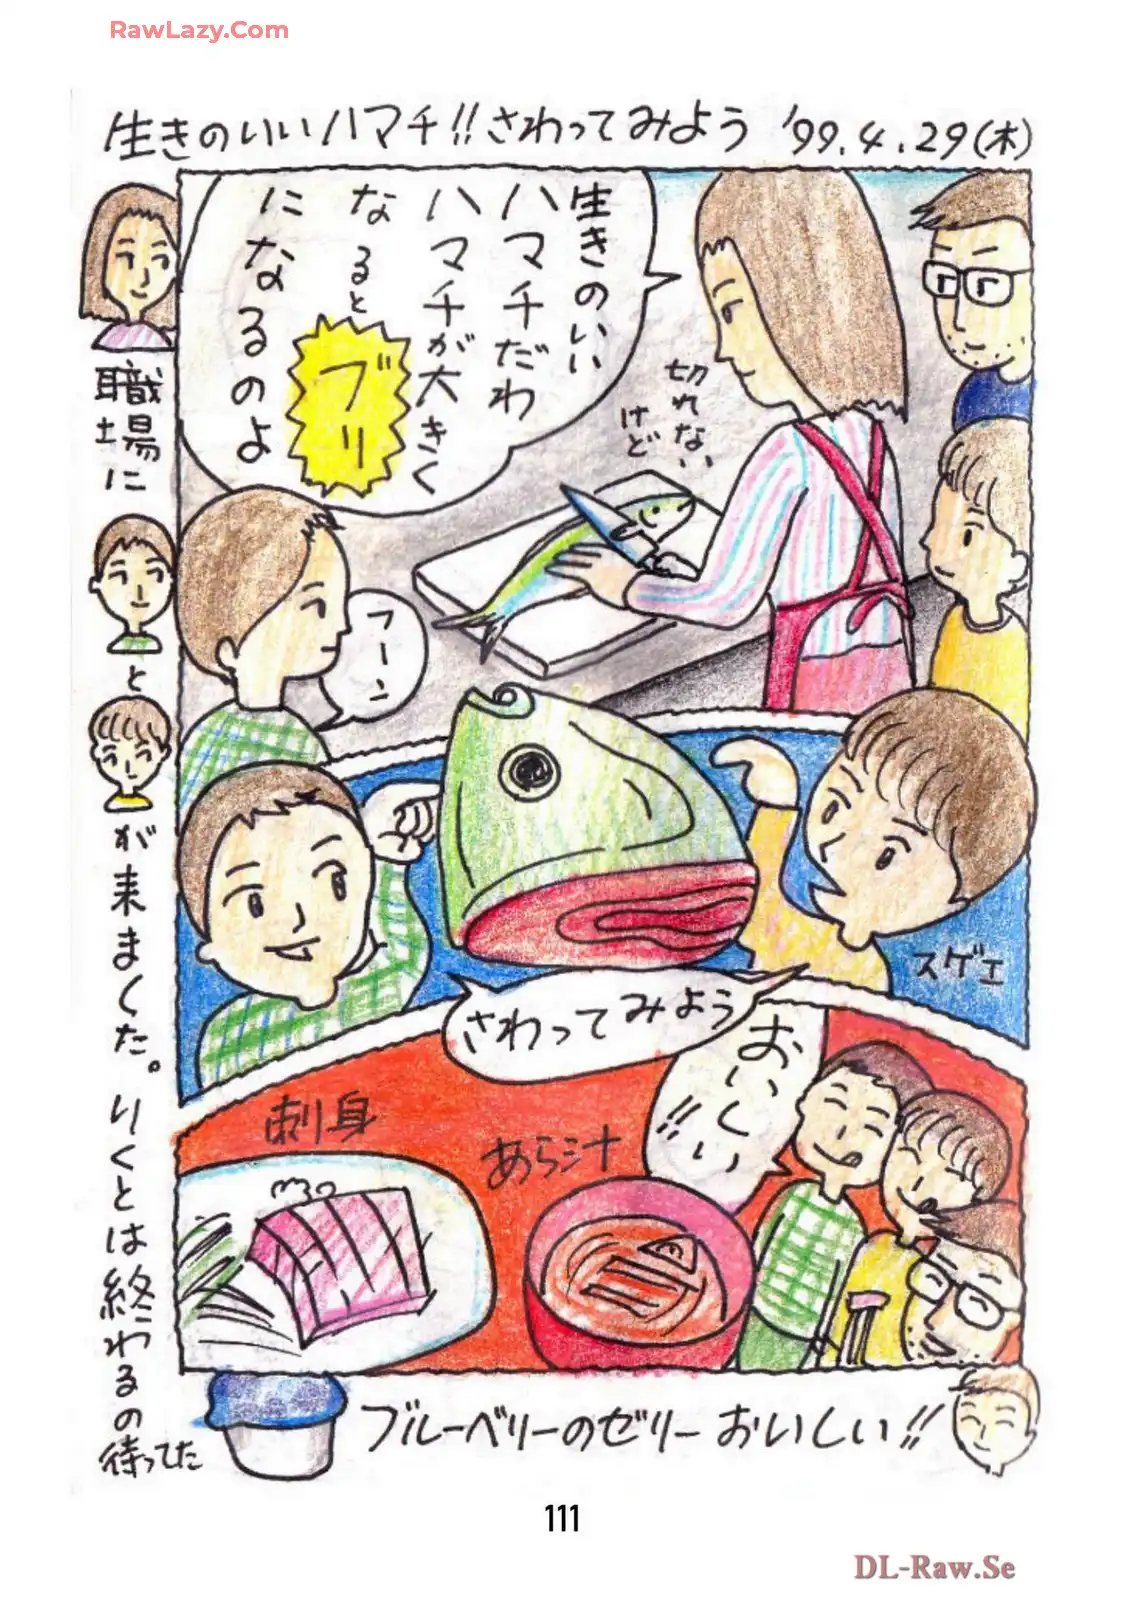 RawLazy.Com
生きのいいハマチ!!さわってみよう '99.4.29(木)
生きのいい
ハマチだわ
ハマチが大きく
なると
ブリ
になるのよ
切れない
けど
フーン
スゲエ
さわってみよう
刺身
あら汁
おいしい!!
職場に
と
が来まくた。りくとは終わるの
待ってた
ブルーベリーのゼリー おいしい!!
111
DL-Raw.Se